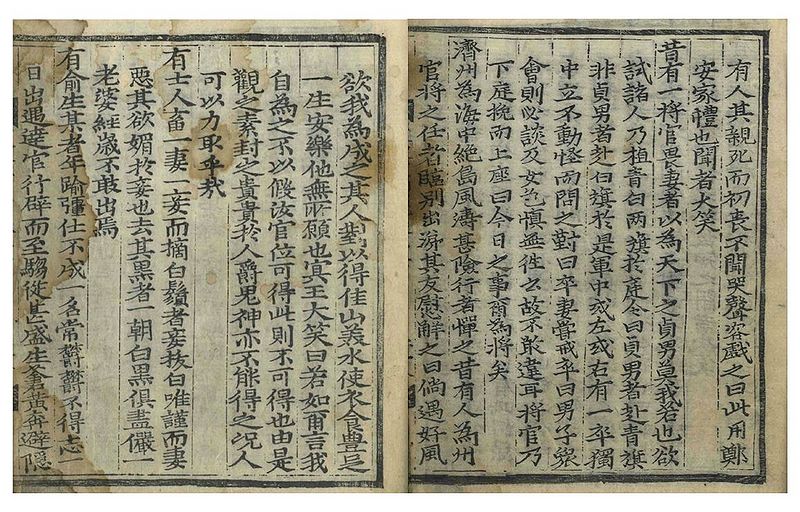 有人其親死而初喪不聞哭聲客戲之曰此用鄭
安家體也聞者大笑
昔有一將官畏妻者以為天下之貞男莫我若也欲
試諸人乃植青白兩旗於庭令曰貞男者赴青旗
非貞男者赴白旗於是軍中或左或右有一卒獨
中立不動怪而問之對曰卒妻嘗戒卒曰男子聚
會則必談及女色慎無往之故不敢違耳將官乃
下庭挽而上座曰今日之事爾為將矣
濟州為海中絶島風濤甚險行者憚之昔有人為州
官將之任者臨別出涕其友慰解之曰倘遇好風
欲我為成之其人對以得佳山美水使衣食豊足
一生安樂他無所願也冥王大笑曰若如爾言我
自為之不以假汝官位可得此則不可得也由是
觀之素封之貴貴於人爵鬼神亦不能得之况人
可以力取乎哉
有士人畜一妻一妾而摘白鬚者妾拔白唯謹而妻
惡其欲媚於妾也去其黑者一朝白黑俱盡儼一
老婆經歲不敢出焉
有俞生某者年踰彊仕不成一名常欝欝不得志一
日出遇達官行辟而至騶從甚盛生蒼黃奔避隱